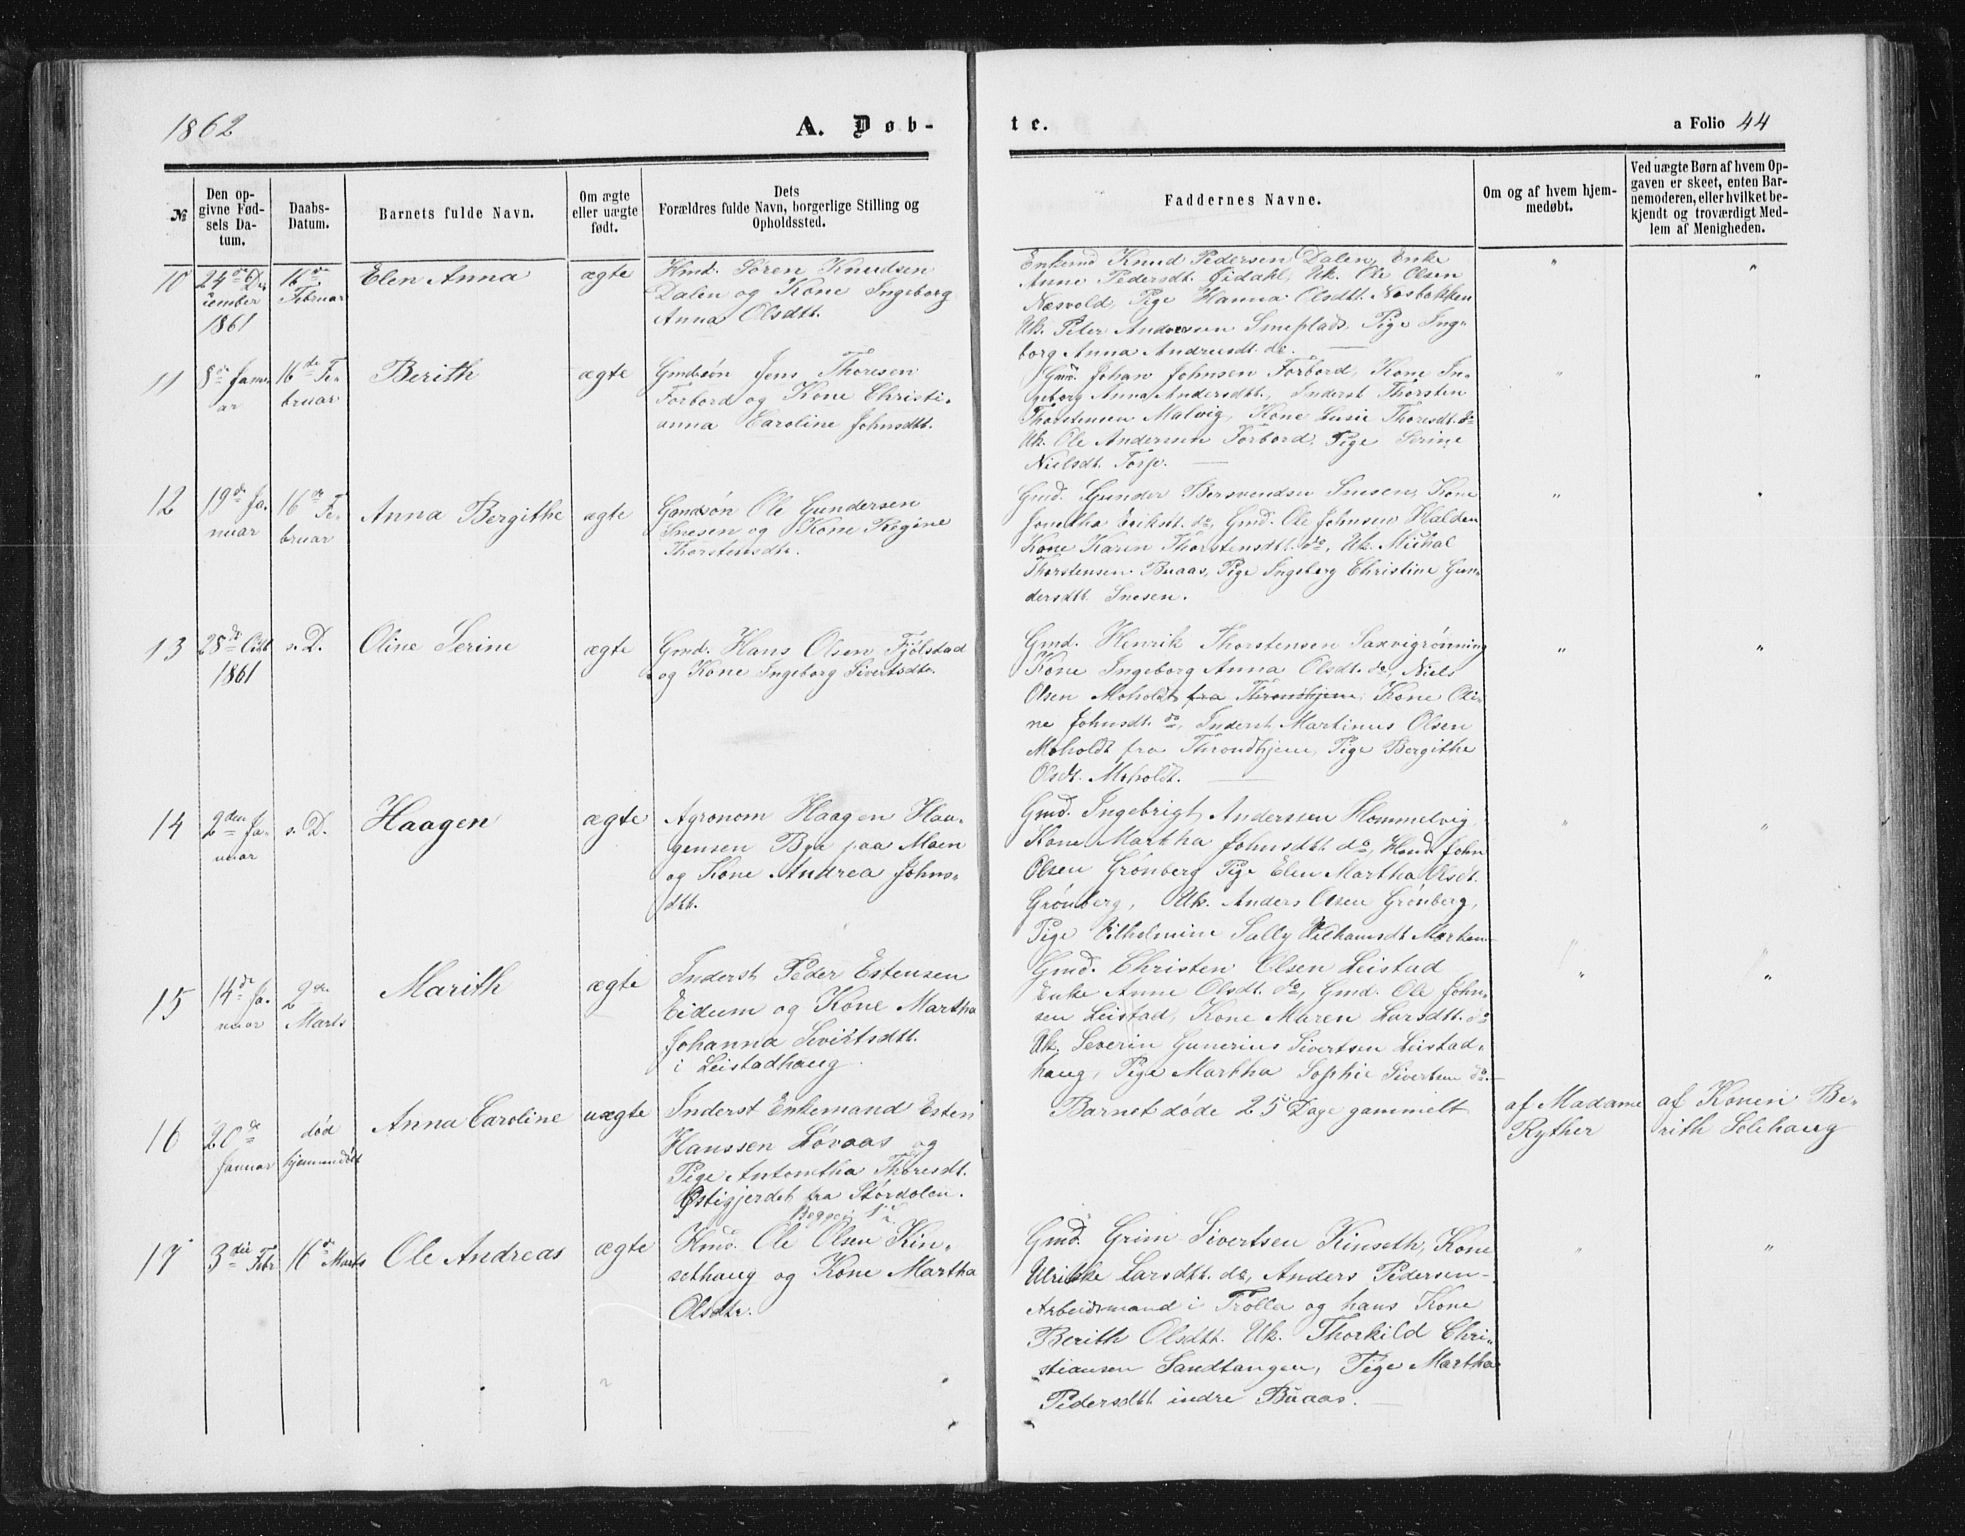 1862
A. Døb-
te.
a Folio 44
№
Den op-
givne Fød-
sels Da-
tum.
Daabs-
Datum.
Barnets fulde Navn.
Om ægte
eller uægte
født.
Dets
Forældres fulde Navn, borgerlige Stilling og
Opholdssted.
Faddernes Navne.
Om og af hvem hjem-
medøbt.
Ved uægte Børn af hvem Op-
gaven er skeet, enten Bar-
nemoderen, eller hvilket be-
kjendt og troværdigt Med-
lem af Menigheden.
10
24de De-
cember
1861
16de
Februar
Elen Anna
ægte
Hmd. Sören Knudsen
Dalen og Kone Ingeborg
Anna Olsdtt.
Enkemd Knud Pedersen Dalen, Enke
Anne Pedersdt. Øidahl, Uk. Ole Olsen
Næsvold, Pige Hanna Olsdtt. Næsbakken
Uk. Peter Andersen Smeplads, Pige Inge-
borg Anna Andreasdt. do.
"
"
11
8de Janu-
ar
16de Fe-
bruar
Berith
ægte
Gmdsøn Jens Thoresen
Forbord og Kone Christi-
anna Caroline Johnsdtt.
Gmd. Johan Johnsen Forbord, Kone In-
geborg Anna Andersdtt., Inderst Thorsten
Thorstensen Malvig, Kone Lusie Thoresdt. do
Uk. Ole Andersen Forbord, Pige Serine
Nielsdt. Torp.
"
"
12
19de Ja-
nuar
16de Fe-
bruar
Anna Bergithe
ægte
Gmdsøn Ole Gundersen
Snesen og Kone Regine
Thorstensdt.
Gmd. Gunder Bersvendsen Snesen, Kone
Jonetha Eriksdt. do, Gmd. Ole Johnsen Halden
Kone Karen Thorstensdtt. do, Uk. Michal
Thorstensen Buaas, Pige Ingeborg Christine Gun-
dersdtt. Snesen.
"
"
13
28de Octb
1861
s. D.
Oline Serine
ægte
Gmd. Hans Olsen Fjølstad
og Kone Ingeborg Sivertsdtr.
Gmd. Henrik Thorstensen Saxvigrønning
Kone Ingeborg Anna Olsdt. do, Niels
Olsen Moholdt fra Throndhjem, Kone Oli-
ne Johnsdt. do, Inderst Martinus Olsen
Moholdt fra Throndhjem, Pige Bergithe
Olsdt. Moholdt.
"
"
14
2den Ja-
nuar
s. D.
Haagen
ægte
Agronom Haagen Haa-
gensen Bye paa Moen
og Kone Andrea Johns-
dtt.
Gmd. Ingebrigt Anderssen Hommelvig
Kone Martha Johnsdtt. do, Hmd. John
Olsen Grønberg, Pige Elen Martha Olsdt.
Grønberg, Uk. Anders Olsen Grønberg,
Pige Vilhelmine Sally
"
"
15
14de Ja-
nuar
2den
Marts
Marith
ægte
Inderst Peder Estensen
Eidum og Kone Martha
Johanna Sivertsdtt.
i Leistadhaug.
Gmd. Christen Olsen Leistad
Enke Anne Olsdt. do, Gmd. Ole John-
sen Leistad, Kone Maren Larsdtt. do
Uk. Severin Gunerius Sivertsen Leistad-
haug, Pige Martha Sophie Sivertsen do.
"
"
16
20de
Januar
død
hjemmedøbt
Anna Caroline
uægte
Inderst Enkemand Esten
Hanssen Løvaas og
Pige Antontha Thoresdt.
Østigjerdet fra Størdalen.
Begges 1ste
Barnet døde 25 Dage gammelt
af Madame
Ryther
af Konen Be-
rith Solehaug
17
3die Febr
16de Marts
Ole Andreas
ægte
Hmd. Ole Olsen Kin-
sethaug og Kone Martha
Olsdtr.
Gmd. Grim Sivertsen Kinseth, Kone
Ulrikke Larsdtt. do, Anders Pedersen
Arbeidsmand i Trolla og hans Kone
Berith Olsdtt. Uk. Thorkild Chri-
stiansen Sandtangen, Pige Martha
Pedersdtt. indre Buaas.
"
"